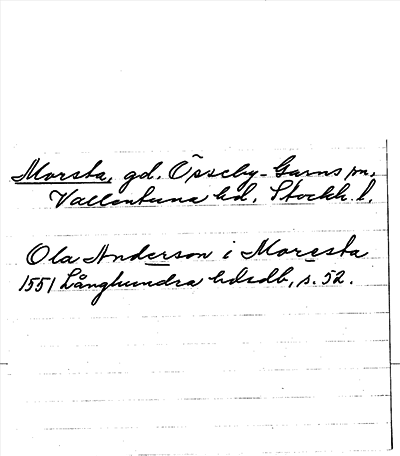 Morsta, gd. Össeby-Garns sn.
Vallentuna hd. Stockh. l.
Ola Anderson i Moresta
1551 Långhundra hdsdb, s. 52.